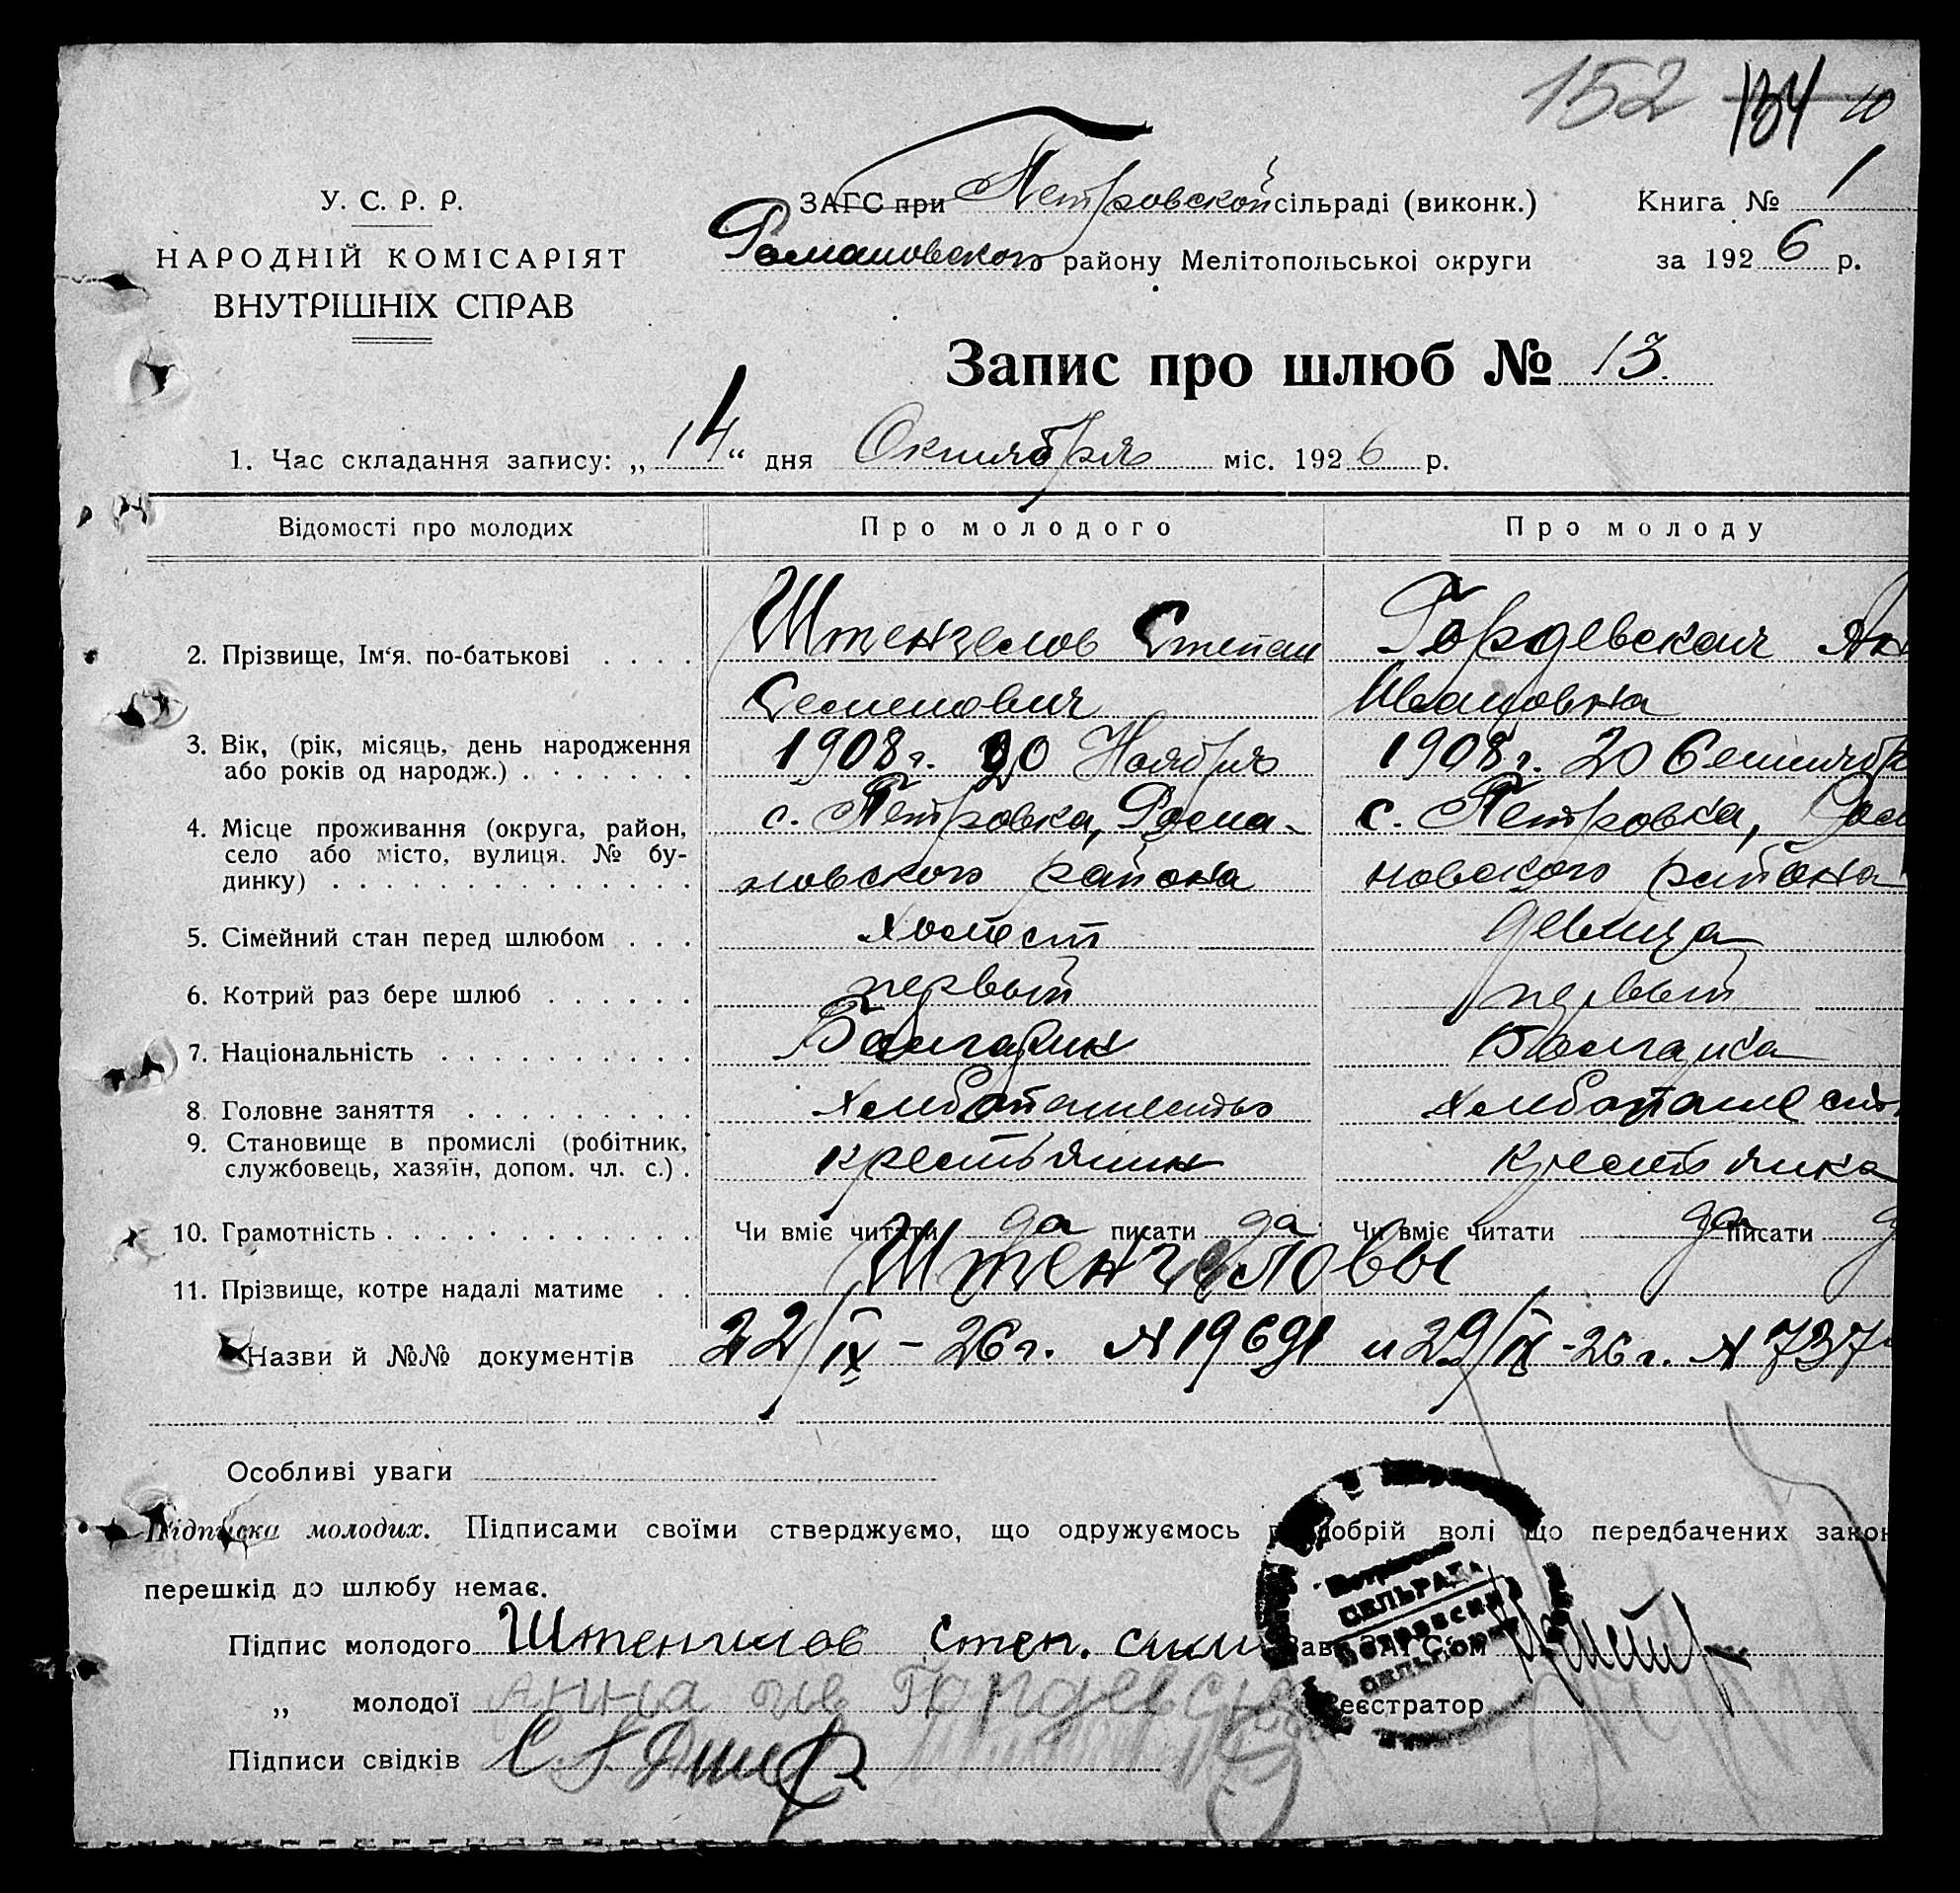 152 134 10
У. С. Р. Р.
НАРОДНІЙ КОМІСАРІЯТ
ВНУТРІШНІХ СПРАВ
ЗАГС при Петровской сільраді (виконк.)
Романовского району Мелітопольскої округи
Книга № 1
за 1926 р.
Запис про шлюб № 13.
1. Час складання запису: „14“ дня Октября міс. 1926 р.
Відомості про молодих Про молодого Про молоду
2. Прізвище, Ім'я. по-батькові . . . . Штенгелов Степан Гордевская Ан
Семенович Ивановна
3. Вік, (рік, місяць, день народження
або років од народж.) . . . . . . . 1908 г. 20 Ноября 1908 г. 20 Сентября
4. Місце проживання (округа, район,
село або місто, вулиця. № бу-
динку) . . . . . . . . . . . . . .
с. Петровка, Рома-
новского района
с. Петровка, Ром
новского района
5. Сімейний стан перед шлюбом . . . холост девица
6. Котрий раз бере шлюб . . . . . . первый первый
7. Національність . . . . . . . . . . Болгарин Болгарка
8. Головне заняття . . . . . . . . . хлебопашество хлебопашест
9. Становище в промислі (робітник,
службовець, хазяїн, допом. чл. с.) . крестьянин крестьянка
10. Грамотність . . . . . . . . . . . . Чи вміє читати да писати да Чи вміє читати да писати
11. Прізвище, котре надалі матиме . . Штенгеловы
Назви й №№ документів 22/IX – 26 г. № 19691 и 29/IX - 26 г. № 737
Особливі уваги
Підписка молодих. Підписами своїми стверджуємо, що одружуємось добрій волі що передбачених закон
перешкід до шлюбу немає.
Підпис молодого Штенгилов Степ. Сим Зав. ЗАГС'ом
„ молодої Анна Ив Гордевск Реєстратор
Підписи свідків
СЕЛЬРАДА